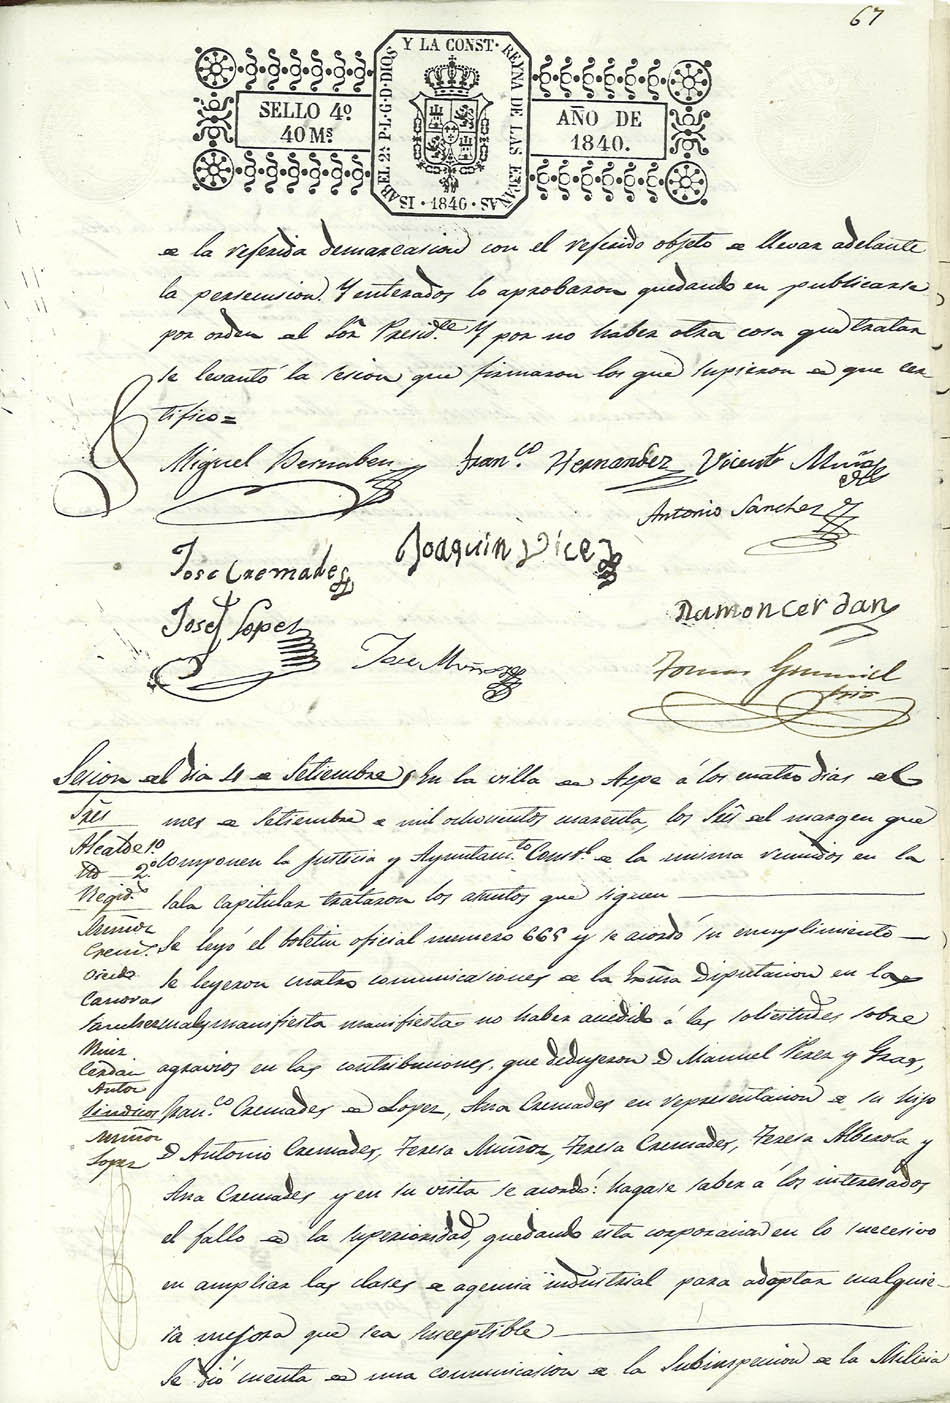 67
ISABEL 2ª P.L.G.D.DIOS Y LA CONST. REYNA DE LAS ESPAÑAS
SELLO 4º
40 Ms.
AÑO DE
1840.
1840
de la referida demarcasion con el referido objeto de llevar adelante
la persecusion. Y enterados lo aprobaron quedando en publicarse
por orden del Sor. Presidte. Y por no haber otra cosa que tratar
se levantó la sesion que firmaron los que supieron de que cer-
tifico=
Miguel Bernabeu Franco. Hernandez Vicente Muñoz
Antonio Sanchez
Jose Cremades Joaquin Vicez
Josef Lopez Ramon Cerdan
Jose Muñoz Tomas
srio
Sesion del dia 4 de Setiembre En la villa de Aspe á los cuatro dias del
Sres mes de Setiembre de mil ochocientos cuarenta, los Sres del margen que
Alcalde 1º
2º componen la Justicia y Ayuntamto. Constl. de la misma reunidos en la
Regids. sala capitular trataron los asuntos que siguen
Muñoz
Crems. Se leyó el boletin oficial numero 665 y se acordó su cumplimiento
Se leyeron cuatro comunicasiones de la Exma Diputacion en las
Canovas
Sanchez cuales manifiesta manifiesta no haber accedido á las solicitudes sobre
Cerdan agravios en las contribusiones, que dedujeron D Manuel Perez y Gras,
Autor
Sindicos Franco. Cremades de Lopez, Ana Cremades en representacion de su hijo
Muñoz
Lopez D Antonio Cremades, Teresa Muñoz, Teresa Cremades, Teresa Alberola y
Ana Cremades y en su vista se acordó: hagase saber á los interesados
el fallo de la superioridad, quedando esta corporacion en lo sucesivo
en ampliar las clases de agencia industrial para adoptar cualquie-
ra mejora que sea suceptible
Se dió cuenta de una comunicasion de la Subinspecsion de la Milicia